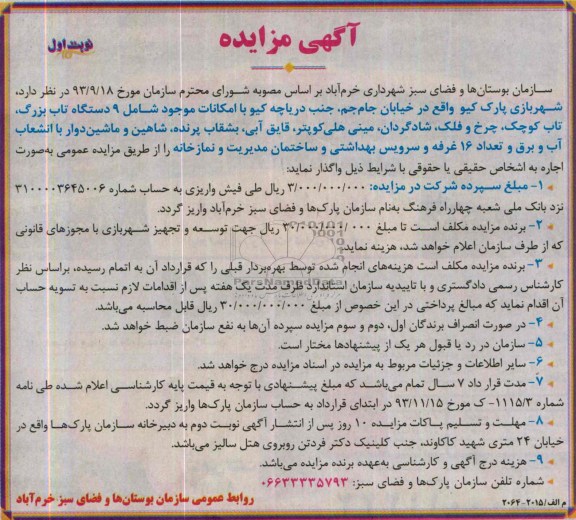 آگهی مزایده
نوبت اول
سازمان بوستان‌ها و فضای سبز شهرداری خرم‌آباد بر اساس مصوبه شورای محترم سازمان مورخ ۹۳/۹/۱۸ در نظر دارد،
شهربازی پارک کیو واقع در خیابان جام‌جم، جنب دریاچه کیو با امکانات موجود شامل ۹ دستگاه تاب بزرگ،
تاب کوچک، چرخ و فلک، شادگردان، مینی هلی‌کوپتر، قایق آبی، بشقاب پرنده، شاهین و ماشین‌دوار با انشعاب
آب و برق و تعداد ۱۶ غرفه و سرویس بهداشتی و ساختمان مدیریت و نمازخانه را از طریق مزایده عمومی به‌صورت
اجاره به اشخاص حقیقی یا حقوقی با شرایط ذیل واگذار نماید:
۱- مبلغ سپرده شرکت در مزایده: ۳/۰۰۰/۰۰۰/۰۰۰ ریال طی فیش واریزی به حساب شماره ۳۱۰۰۰۰۳۶۴۵۰۰۶
نزد بانک ملی شعبه چهارراه فرهنگ به‌نام سازمان پارک‌ها و فضای سبز خرم‌آباد واریز گردد.
۲- برنده مزایده مکلف است تا مبلغ ۳۰/۰۰۰/۰۰۰/۰۰۰ ریال جهت توسعه و تجهیز شهربازی با مجوزهای قانونی
که از طرف سازمان اعلام خواهد شد، هزینه نماید.
۳- برنده مزایده مکلف است هزینه‌های انجام شده توسط بهره‌بردار قبلی را که قرارداد آن به اتمام رسیده، براساس نظر
کارشناس رسمی دادگستری و با تاییدیه سازمان استاندارد ظرف مدت یک هفته پس از اقدامات لازم نسبت به تسویه حساب
آن اقدام نماید که مبالغ پرداختی در این خصوص از مبلغ ۳۰/۰۰۰/۰۰۰/۰۰۰ ریال قابل محاسبه می‌باشد.
۴- در صورت انصراف برندگان اول، دوم و سوم مزایده سپرده آن‌ها به نفع سازمان ضبط خواهد شد.
۵- سازمان در رد یا قبول هر یک از پیشنهادها مختار است.
۶- سایر اطلاعات و جزئیات مربوط به مزایده در اسناد مزایده درج خواهد شد.
۷- مدت قرار داد ۷ سال تمام می‌باشد که مبلغ پیشنهادی با توجه به قیمت پایه کارشناسی اعلام شده طی نامه
شماره ۱۱۱۵/۳- ک مورخ ۹۳/۱۱/۱۵ در ابتدای قرارداد به حساب سازمان پارک‌ها واریز گردد.
۸- مهلت و تسلیم پاکات مزایده ۱۰ روز پس از انتشار آگهی نوبت دوم به دبیرخانه سازمان پارک‌ها واقع در
خیابان ۲۴ متری شهید کاکاوند، جنب کلینیک دکتر فردتن روبروی هتل سالیز می‌باشد.
۹- هزینه درج آگهی و کارشناسی به‌عهده برنده مزایده می‌باشد.
شماره تلفن سازمان پارک‌ها و فضای سبز: ۰۶۶۳۳۳۳۵۷۹۳
روابط عمومی سازمان بوستان‌ها و فضای سبز خرم‌آباد
م الف/۲۰۱۵-۲۰۶۴